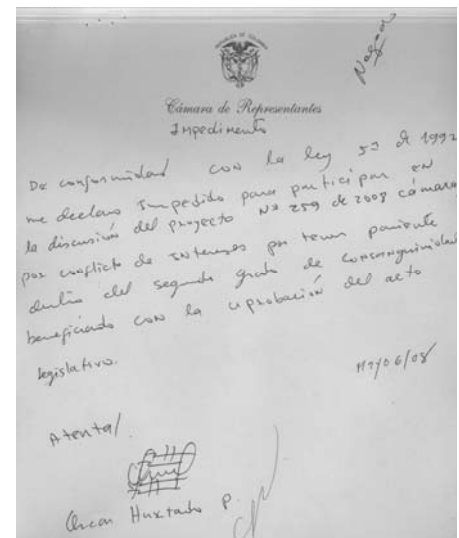 Negado
REPUBLICA DE COLOMBIA
Cámara de Representantes
Impedimento
De conformidad con la ley 5ª de 1992
me declaro Impedido para participar en
la discusión del proyecto Nº 259 de 2008 cámara
por conflicto de intereses por tener pariente
dentro del segundo grado de consanguinidad
beneficiado con la aprobación del acto
legislativo.
06/08
Atental
Hurtado P.